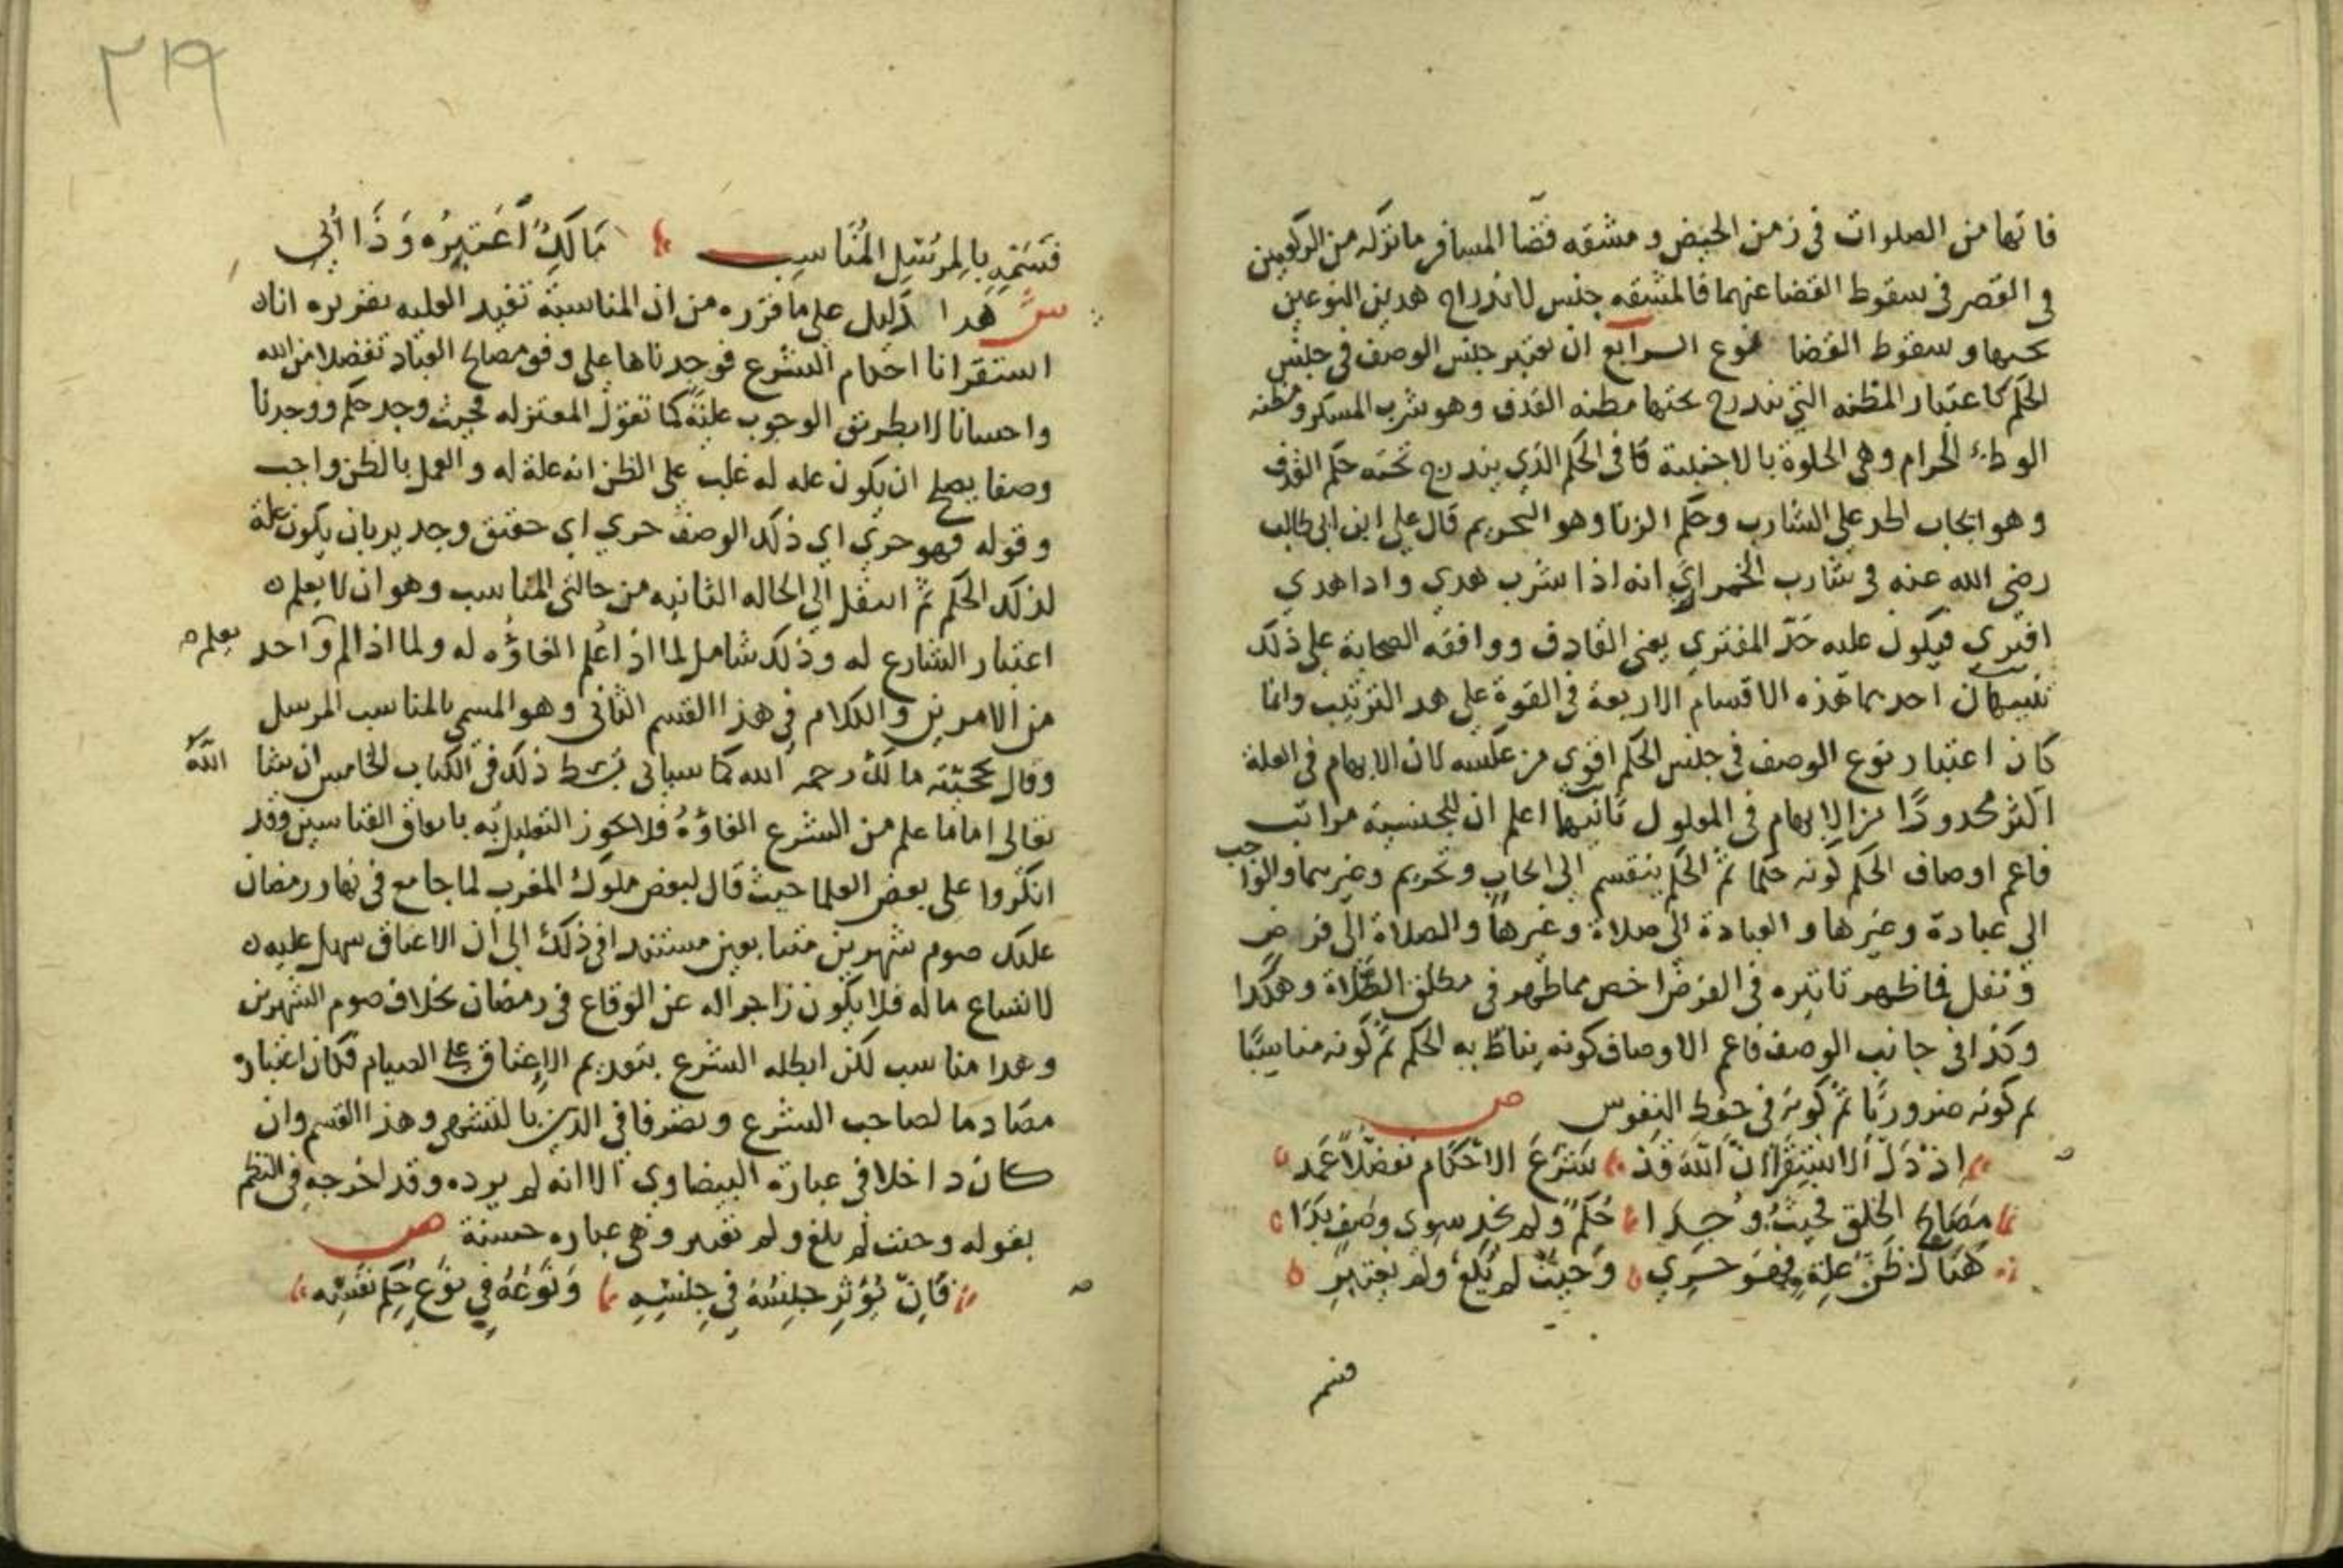 فاتها من الصلوات في زمن الحيض ومشقه قضا المسافر ما تركه من الركعتين
في القصر في سقوط القضا عنهما فالمشقه جنس لاندراج هدين النوعين
تحتها وسقوط القضا نوع الرابع ان يعتبر جنس الوصف في جنس
الحكم كاعتبار المظنه التي يندرج تحتها مظنه القذف وهو شرب المسكر ومظنه
الوطء الحرام وهي الخلوة بالاجنبية كافي الحكم الذي يندرج تحته حكم القذف
وهو ايجاب الحد على الشارب وحكم الزنا وهو التحريم قال علي ابن ابي طالب
رضي الله عنه في شارب الخمر اري انه اذا شرب هدي واداهدي
افترى فيكون عليه حد المفتري يعني القادف ووافقه الصحابة على ذلك
تنبيهان احدهما هذه الاقسام الاربعة في القوة على هد الترتيب وانما
كان اعتبار نوع الوصف في جنس الحكم اقوي من عكسه لان الابهام في العلة
اكثر محدودًا من الابهام في المعلول ثانيها اعلم ان للجنسية مراتب
فاعم اوصاف الحكم كونه حكما ثم الحكم ينقسم الى ايجاب وتحريم وغيرهما والواجب
الى عبادة وغيرها والعبادة الى صلاة وغيرها والصلاة الى فرض
ونفل فما ظهر تاثيره في الفرض اخص مما ظهر في مطلق الصلاة وهكدا
وكذا في جانب الوصف فاعم الاوصاف كونه يناط به الحكم ثم كونه مناسبًا
ثم كونه ضروريًا ثم كونه في حفظ النفوس ص
اذ دل الاستقرا ان الله قد شرع الاحكام تفضلًا عمد
مصالح الخلق فحيث وجدا حكم ولم نجد سوى وصف بدا
هناك ظن علة فهو حري وحيث لم يلغ ولم يعتبر
فسم
٢١٩
فسمه بالمرسل المناسب مالك اعتبره وذا ابي
ش هدا دليل على ما قرره من ان المناسبة تفيد العليه تقريره انان
استقرانا احكام الشرع فوجدناها على وفق مصالح العباد تفضلا من الله
واحسانا لا بطريق الوجوب علية كما تقول المعتزله فحيث وجد حكم ووجدنا
وصفا يصلح ان يكون عله له غلب على الظن انه علة له والعمل بالظن واجب
وقوله فهو حري اي ذلك الوصف حري اي حقيق وجدير بان يكون علة
لذلك الحكم ثم انتقل الى الحاله الثانيه من حالتي المناسب وهو ان لا يعلم
اعتبار الشارع له وذلك شامل لما اذا علم الغاؤه له ولما اذا لم واحد يعلم
من الامرين والكلام في هذا القسم الثاني وهو المسمى بالمناسب المرسل
وقال بحجيته مالك رحمه الله كما سياتي بسط ذلك في الكتاب الخامس ان شا الله
تعالى اما ما علم من الشرع الغاؤه فلا يجوز التعليل به باتفاق القياسين وقد
انكروا على بعض العلما حيث قال لبعض ملوك المغرب لما جامع في نهار رمضان
عليك صوم شهرين متتابعين مستندا في ذلك الى ان الاعتاق سهل عليه
لاتساع ماله فلا يكون زاجرا له عن الوقاع في رمضان بخلاف صوم الشهرين
وهدا مناسب لكن ابطله الشرع بتقديم الاعتاق على الصيام فكان اعتباره
مضادما لصاحب الشرع وتصرفا في الدين بالتشهي وهذا القسم وان
كان داخلا في عبارة البيضاوي الا انه لم يرده وقد اخرجه في النظم
بقوله وحيث لم يلغ ولم تعتبر وهي عباره حسنة ص
فان يؤثر جنسه في جنسه ونوعه في نوع حكم نفسه